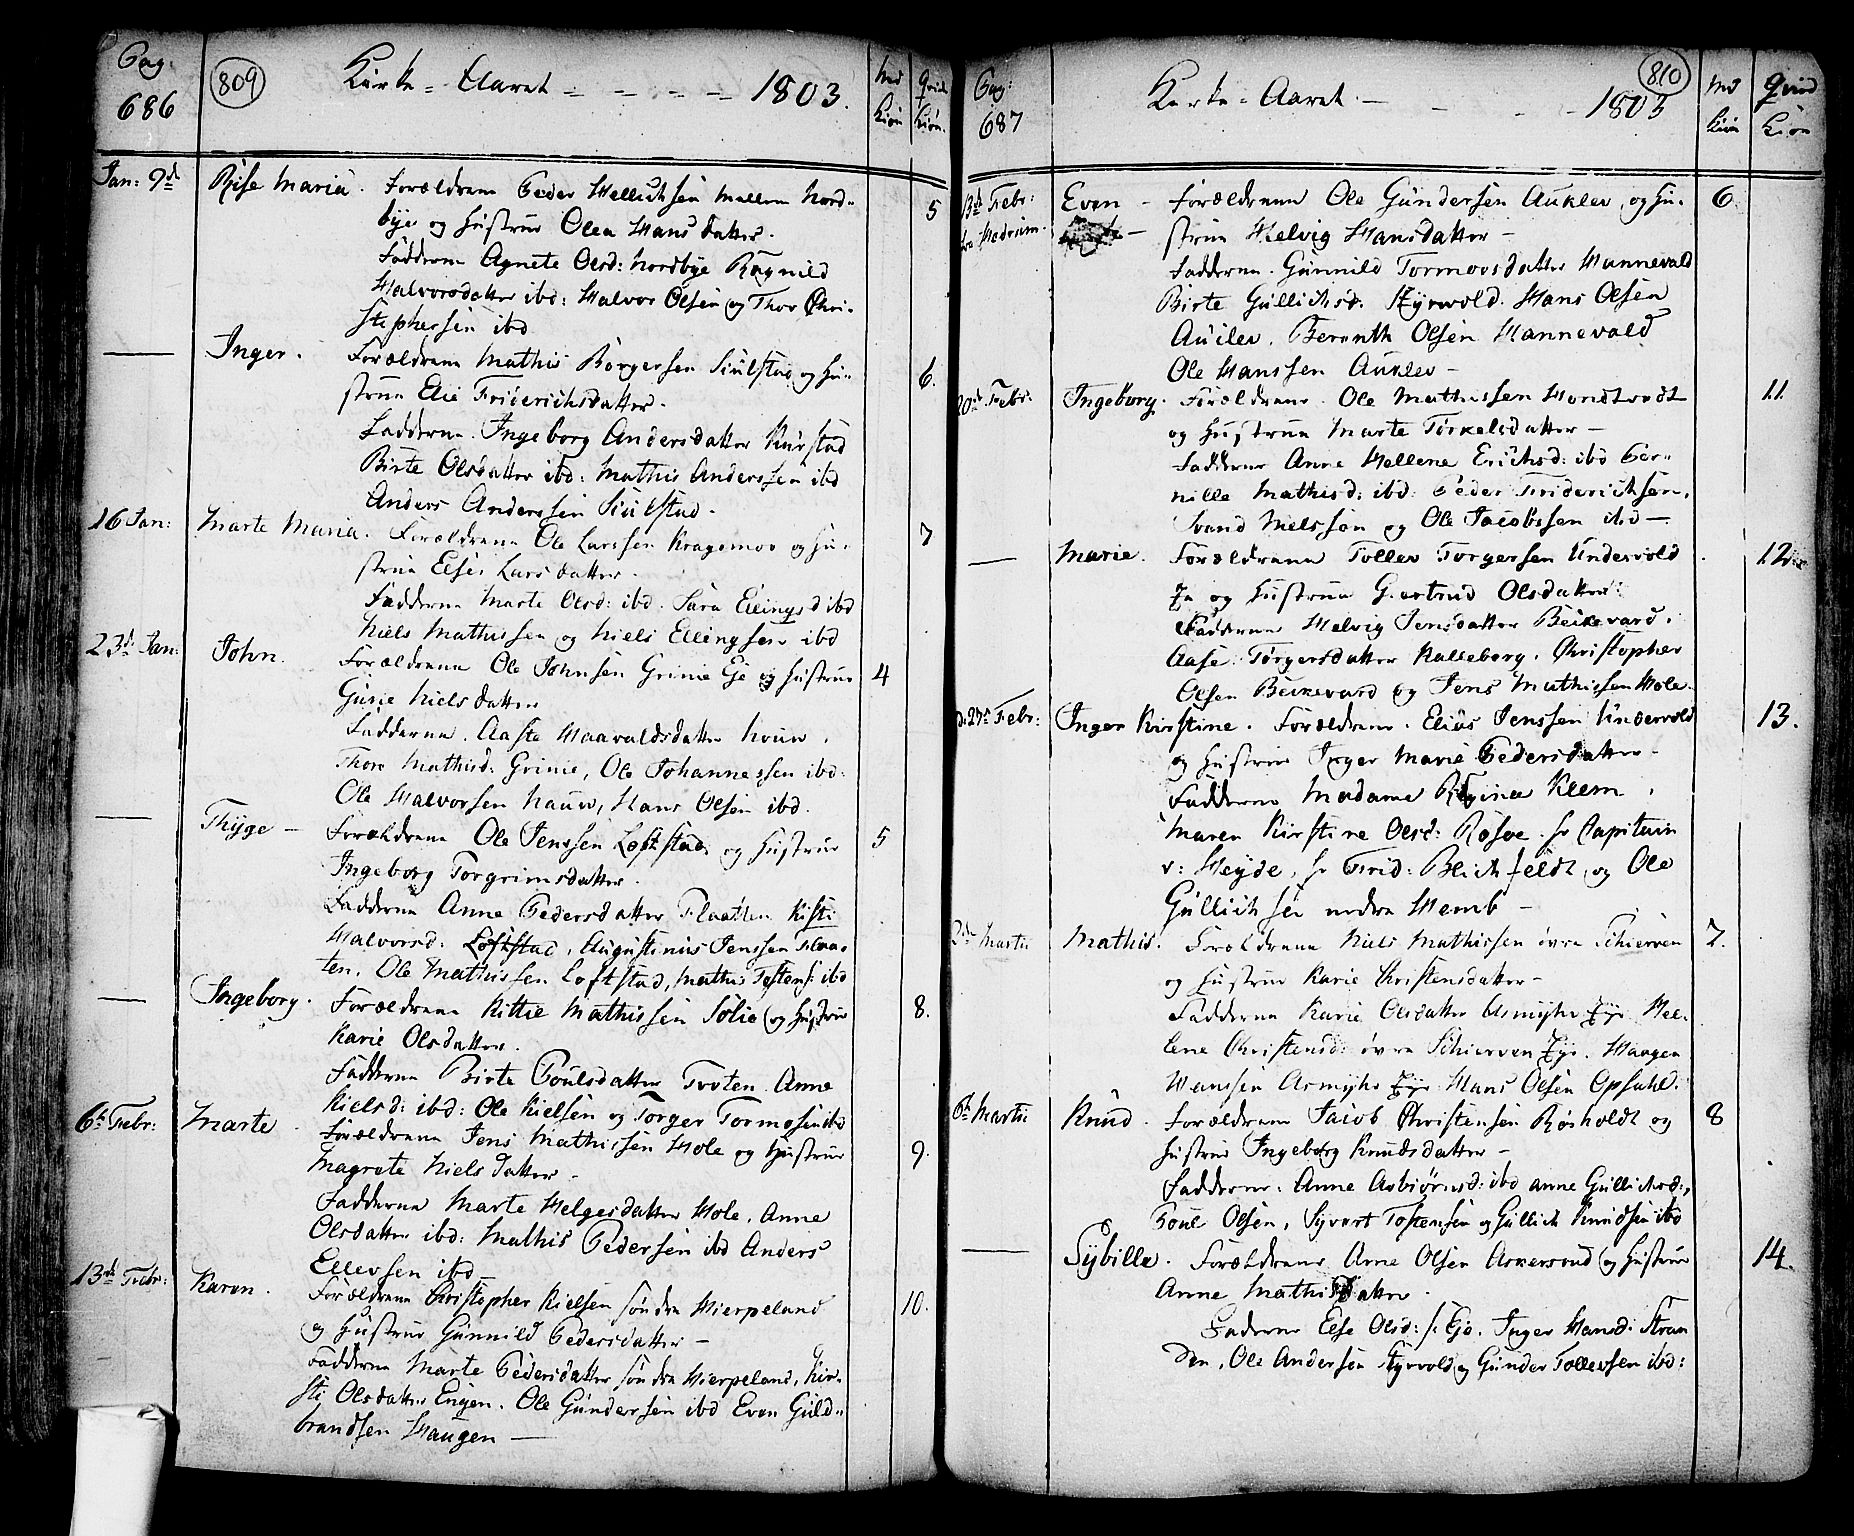 Pag:
686
809
Kirke = Aaret - - - - - 1803.
Md
Kiön
Qvind
Kiön.
Jan: 9de
Rise Maria. Forældrene Peder Hellichsen mellem Nord=
bye og Hustrue Olea Hansdatter.
5
Fadderne Agnete Olsd: Nordbye Ragnild
Halvorsdatter ibd: Halvor Olsen og Thor Chri-
stephersen ibd
— Inger. Forældrene Mathis Börgersen og Hu=
6.
strue Elie Friderichsdatter.
Fadderne. Ingeborg Andersdatter
Birte Olsdatter ibd: Mathis Anderssen ibd
Anders Anderssen
16 Jan:
Marte Maria. Forældrene Ole Larssen Kragemoe og Hu=
7
strue Else Larsdatter.
Fadderne Marte Olsd: ibd. Sara Ellingsd ibd
Niels Mathissen og Niels Ellingsen ibd
23d Jan:
John. Forældrene Ole Johnsen Grinie Eje og Hustrue
4
Gurie Nielsdatter
Fadderne. Aaste Haavaldsdatter
Thore Mathisd: Grinie, Ole Johannessen ibd:
Ole Halvorsen Hauw, Hans Olsen ibd.
— Thyge - Forældrene Ole Jenssen Loftstad, og Hustrue
5
Ingeborg Torgrimsdatter.
Fadderne Anne Pedersdatter Flaatten Kisti
Halvorsd: Loftstad, Augustinus Jenssen Flaa=
ten, Ole Mathissen Loftstad, Mathis ibd
— Ingeborg. Forældrene Kittil Mathissen Solie og Hustrue
8.
Karie Olsdatter.
Fadderne Birte Poulsdatter Tveten. Anne
Nielsd: ibd: Ole Nielsen og Torger Tormosen ibd
6te Febr:
Marte. Forældrene Jens Mathissen Hole og Hustrue
9.
Magrete Nielsdatter -
Fadderne Marte Helgesdatter Hole. Anne
Olsdatter ibd: Mathis Pedersen ibd Anders
Ellevsen ibd
13de Febr:
Karen. Forældrene Christopher Nielsen söndre Hierpeland
10.
og Hustrue Gunnild Pedersdatter -
Fadderne Marte Pedersdatter söndre Hierpeland, Kir=
sti Olsdatter Engen. Ole Gundersen ibd Even Guld=
brandsen Haugen —
Pag:
687
810
Kirke = Aaret - - - 1803
Md
Kiön
Qvind
Kiön
13de Febr:
Even - Forældrene Ole Gundersen Auklev, og Hu=
6.
strue Helvig Hansdatter -
Fadderne. Gunnild Tormodsdatter Hannevald
Birte Gullichsd. Styrvold. Hans Olsen
Auklev. Berenth Olsen Hannevald
Ole Hanssen Auklev -
20de Febr:
Ingeborg. Forældrene. Ole Mathissen Hvendtvedt
11.
og Hustrue Marte Torkelsdatter -
Fadderne Anne Hellene Erichsd: ibd Per=
nille Mathisd: ibd: Peder Friderichsen,
Svend Nielssøn og Ole Jacobssen ibd —
— Marie. Forældrene Tollev Torgersen Undervold
12.
og Hustrue Giertrud Olsdatter
Fadderne Helvig Jensdatter Beckevard.
Aase Torgersdatter Kalleberg. Christopher
Olsen Beckevard og Jens Mathissen Hole.
d: 27de Febr:
Inger Kirstine. Forældrene. Elias Jenssen Undervold
13.
og Hustrue Inger Marie Pedersdatter -
Fadderne Madame Regina Klem,
Maren Kirstine Olsd: Rosve. hr Capitain
v: Heyde, hr Frid: Blichfeldt, og Ole
Gullichsen nedre Hemb -
2de Martii
Mathis. Forældrene Niels Mathissen övre Schierven
7.
og Hustrue Karie Christensdatter -
Fadderne Karie Olsdatter Asmyhr Eje Hel=
lene Christensd: övre Schierven Eje. Haagen
Hanssen Asmyhr Eje Hans Olsen Opsahl.
6te Martii
Knud. Forældrene Jacob Christensen Rosholdt og
8
Hustrue Ingeborg Knudsdatter -
Fadderne. Anne Asbiörnsd: ibd Anne Gullichsd:,
Poul Olsen, Syvert Tostensen og Gullich Knudsen ibd
— Sybille. Forældrene Arne Olsen Askersrud og Hustrue
14.
Anne Mathisdatter.
Faderne Else Olsd: Inger Hansd: Stran
den, Ole Andersen Styrvold og Gunder Tollevsen ibd: